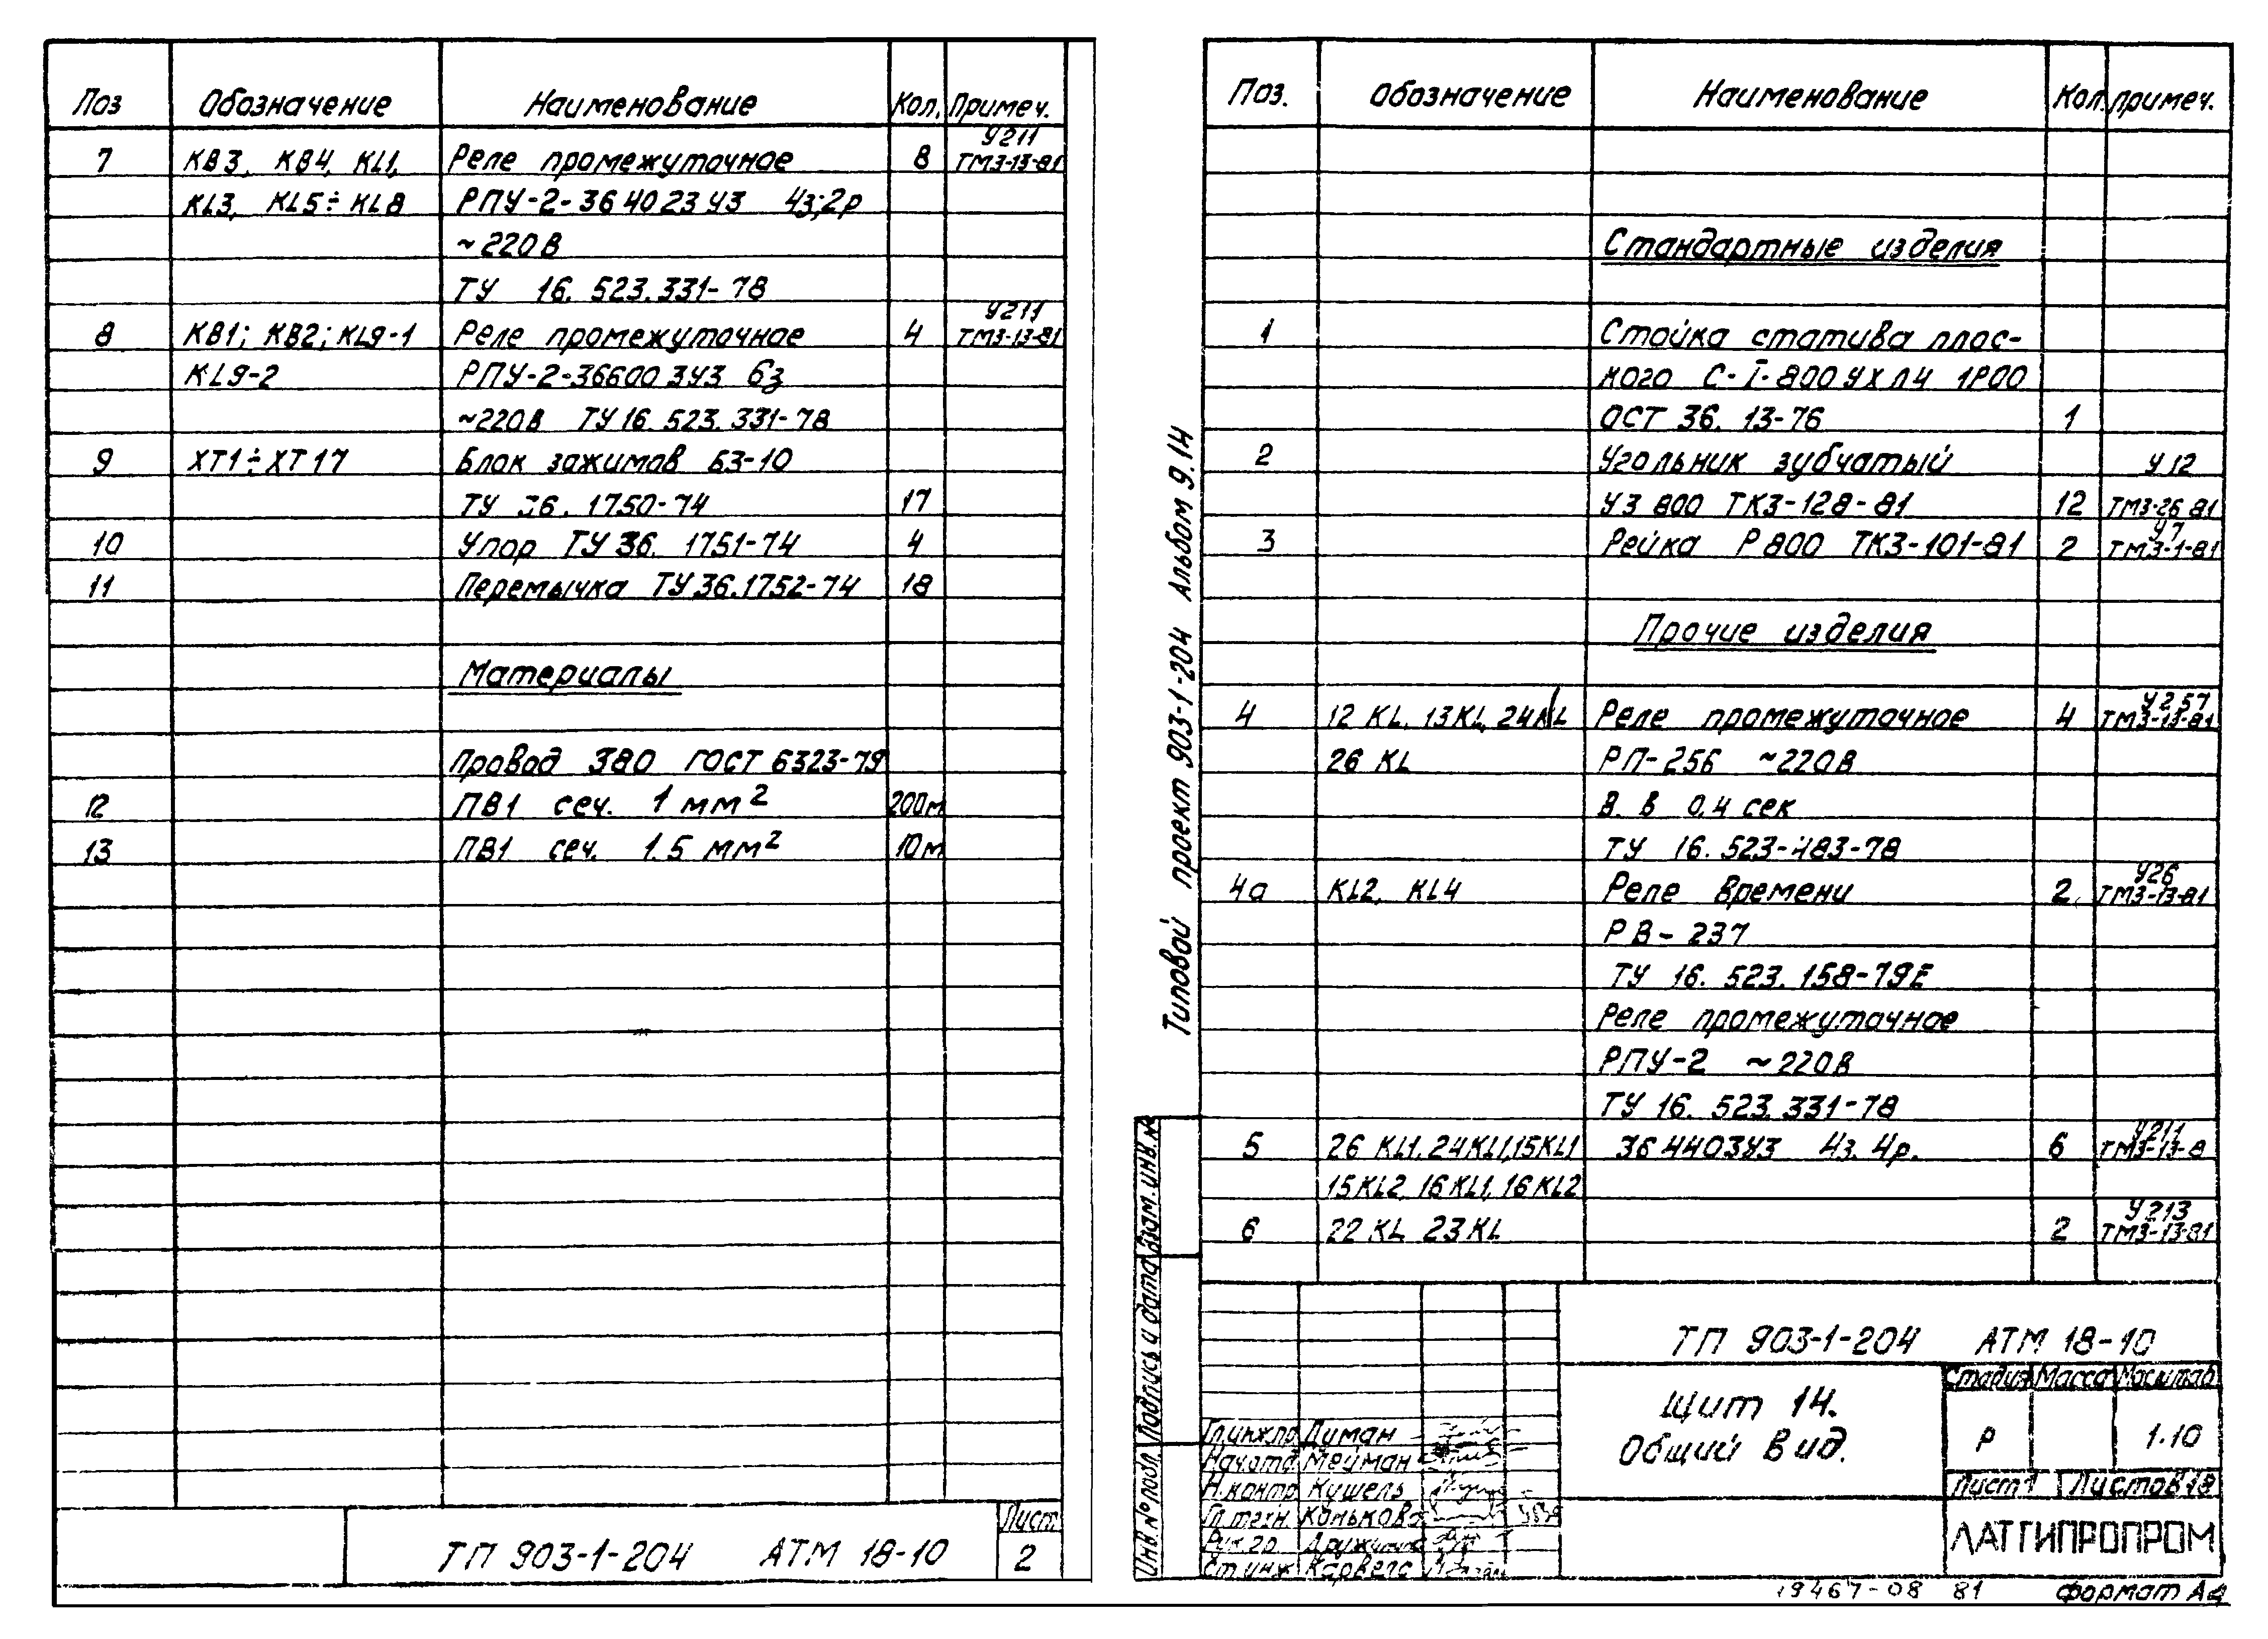 Поз Обозначение Наименование Кол. Примеч.
У211
7 КВ3, КВ4, KL1, Реле промежуточное 8 ТМ3-13-81
KL3, KL5÷KL8 РПУ-2-364023У3 4з;2р
~220В
ТУ 16.523.331-78
У211
8 КВ1; КВ2; KL9-1 Реле промежуточное 4 ТМ3-13-81
KL9-2 РПУ-2-366003У3 6з
~220В ТУ 16.523.331-78
9 ХТ1÷ХТ17 Блок зажимов БЗ-10
ТУ 36.1750-74 17
10 Упор ТУ 36.1751-74 4
11 Перемычка ТУ 36.1752-74 18
Материалы
Провод 380 ГОСТ 6323-79
12 ПВ1 сеч. 1 мм² 200м
13 ПВ1 сеч. 1.5 мм² 10м
ТП 903-1-204 АТМ 18-10
Лист
2
Типовой проект 903-1-204 Альбом 9.14
Поз. Обозначение Наименование Кол. примеч.
Стандартные изделия
1 Стойка статива плос-
кого С-I-800 УХЛ4 1Р00
ОСТ 36.13-76 1
2 Угольник зубчатый У12
УЗ 800 ТК3-128-81 12 ТМ3-26 81
У7
3 Рейка Р800 ТК3-101-81 2 ТМ3-1-81
Прочие изделия
У257
4 12 KL, 13KL, 24KL Реле промежуточное 4 ТМ3-13-81
26 KL РП-256 ~220В
В. в 0,4 сек
ТУ 16.523-483-78
У26
4а KL2, KL4 Реле времени 2 ТМ3-13-81
РВ-237
ТУ 16.523.158-79Е
Реле промежуточное
РПУ-2 ~220В
ТУ 16.523.331-78
У211
5 26 KL1. 24KL1, 15KL1 364403У3 4з. 4р. 6 ТМ3-13-8
15KL2, 16KL1, 16KL2
У213
6 22 KL 23KL 2 ТМ3-13-81
Инв.№ подл. Подпись и дата Взам.инв.№
ТП 903-1-204 АТМ 18-10
Щит 14.
Общий вид.
Стадия Масса Масштаб
Р 1·10
Лист 1 Листов 18
ЛАТГИПРОПРОМ
Гл.инж.пр Диман
Нач.отд. Мейман
Н.контр Кушель
Гл.техн. Конькова
Рук.гр
Ст.инж Карвелс
19467-08 81 формат А4